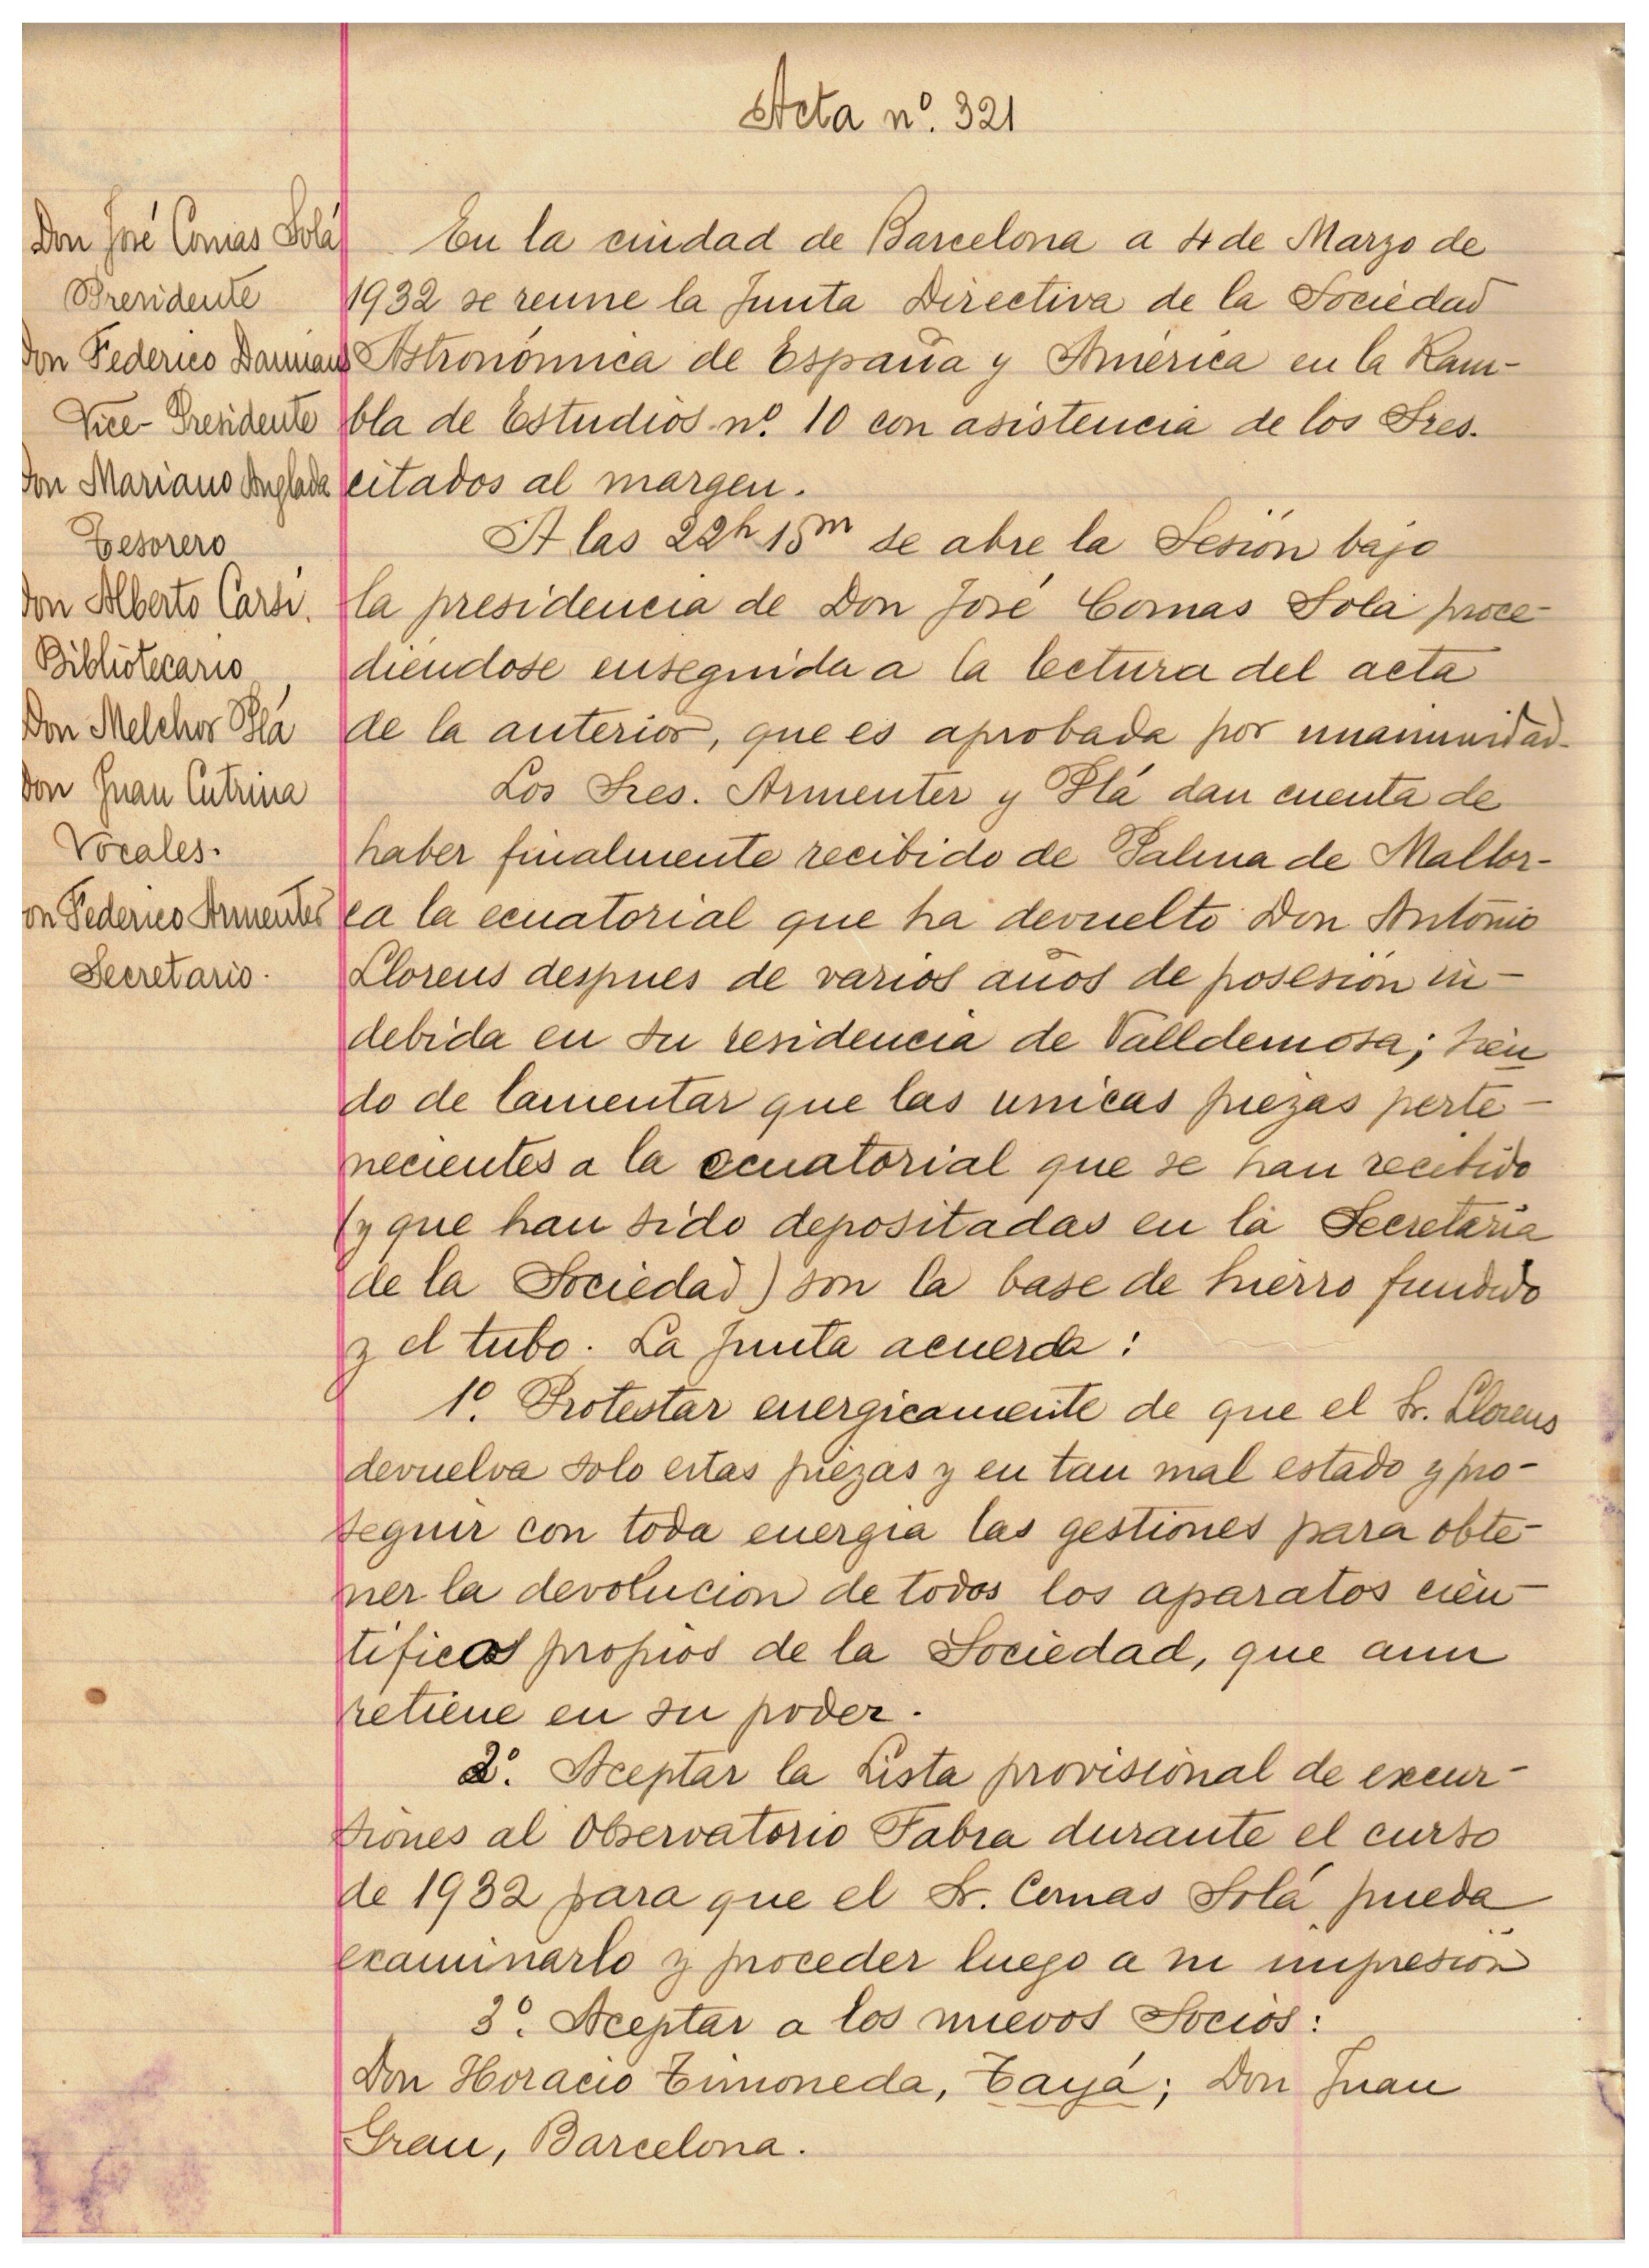 Acta nº. 321
Don José Comas Solá
Presidente
Don Federico Damians
Vice-Presidente
Don Mariano Anglada
Tesorero
Don Alberto Carsi.
Bibliotecario
Don Melchor Plá
Don Juan Cutrina
Vocales.
on Federico Armenter
Secretario.
En la ciudad de Barcelona a 4 de Marzo de
1932 se reune la Junta Directiva de la Sociedad
Astronómica de España y América en la Ram-
bla de Estudios nº. 10 con asistencia de los Sres.
citados al margen.
A las 22h 15m se abre la Sesión bajo
la presidencia de Don José Comas Solá proce-
diendose enseguida a la lectura del acta
de la anterior, que es aprobada por unanimidad.
Los Sres. Armenter y Plá dan cuenta de
haber finalmente recibido de Palma de Mallor-
ca la ecuatorial que ha devuelto Don Antonio
Llorens despues de varios años de posesión in-
debida en su residencia de Valldemosa; sien
do de lamentar que las unicas piezas perte-
necientes a la ecuatorial que se han recibido
(y que han sido depositadas en la Secretaría
de la Sociedad) son la base de hierro fundido
y el tubo. La Junta acuerda:
1º. Protestar energicamente de que el Sr. Llorens
devuelva solo estas piezas y en tan mal estado y pro-
seguir con toda energia las gestiones para obte-
ner la devolucion de todos los aparatos cien-
tificos propios de la Sociedad, que aun
retiene en su poder.
2º. Aceptar la Lista provisional de excur-
siones al Observatorio Fabra durante el curso
de 1932 para que el Sr. Comas Solá pueda
examinarlo y proceder luego a su impresión
3º. Aceptar a los nuevos Socios:
Don Horacio Timoneda, Tayá; Don Juan
Grau, Barcelona.